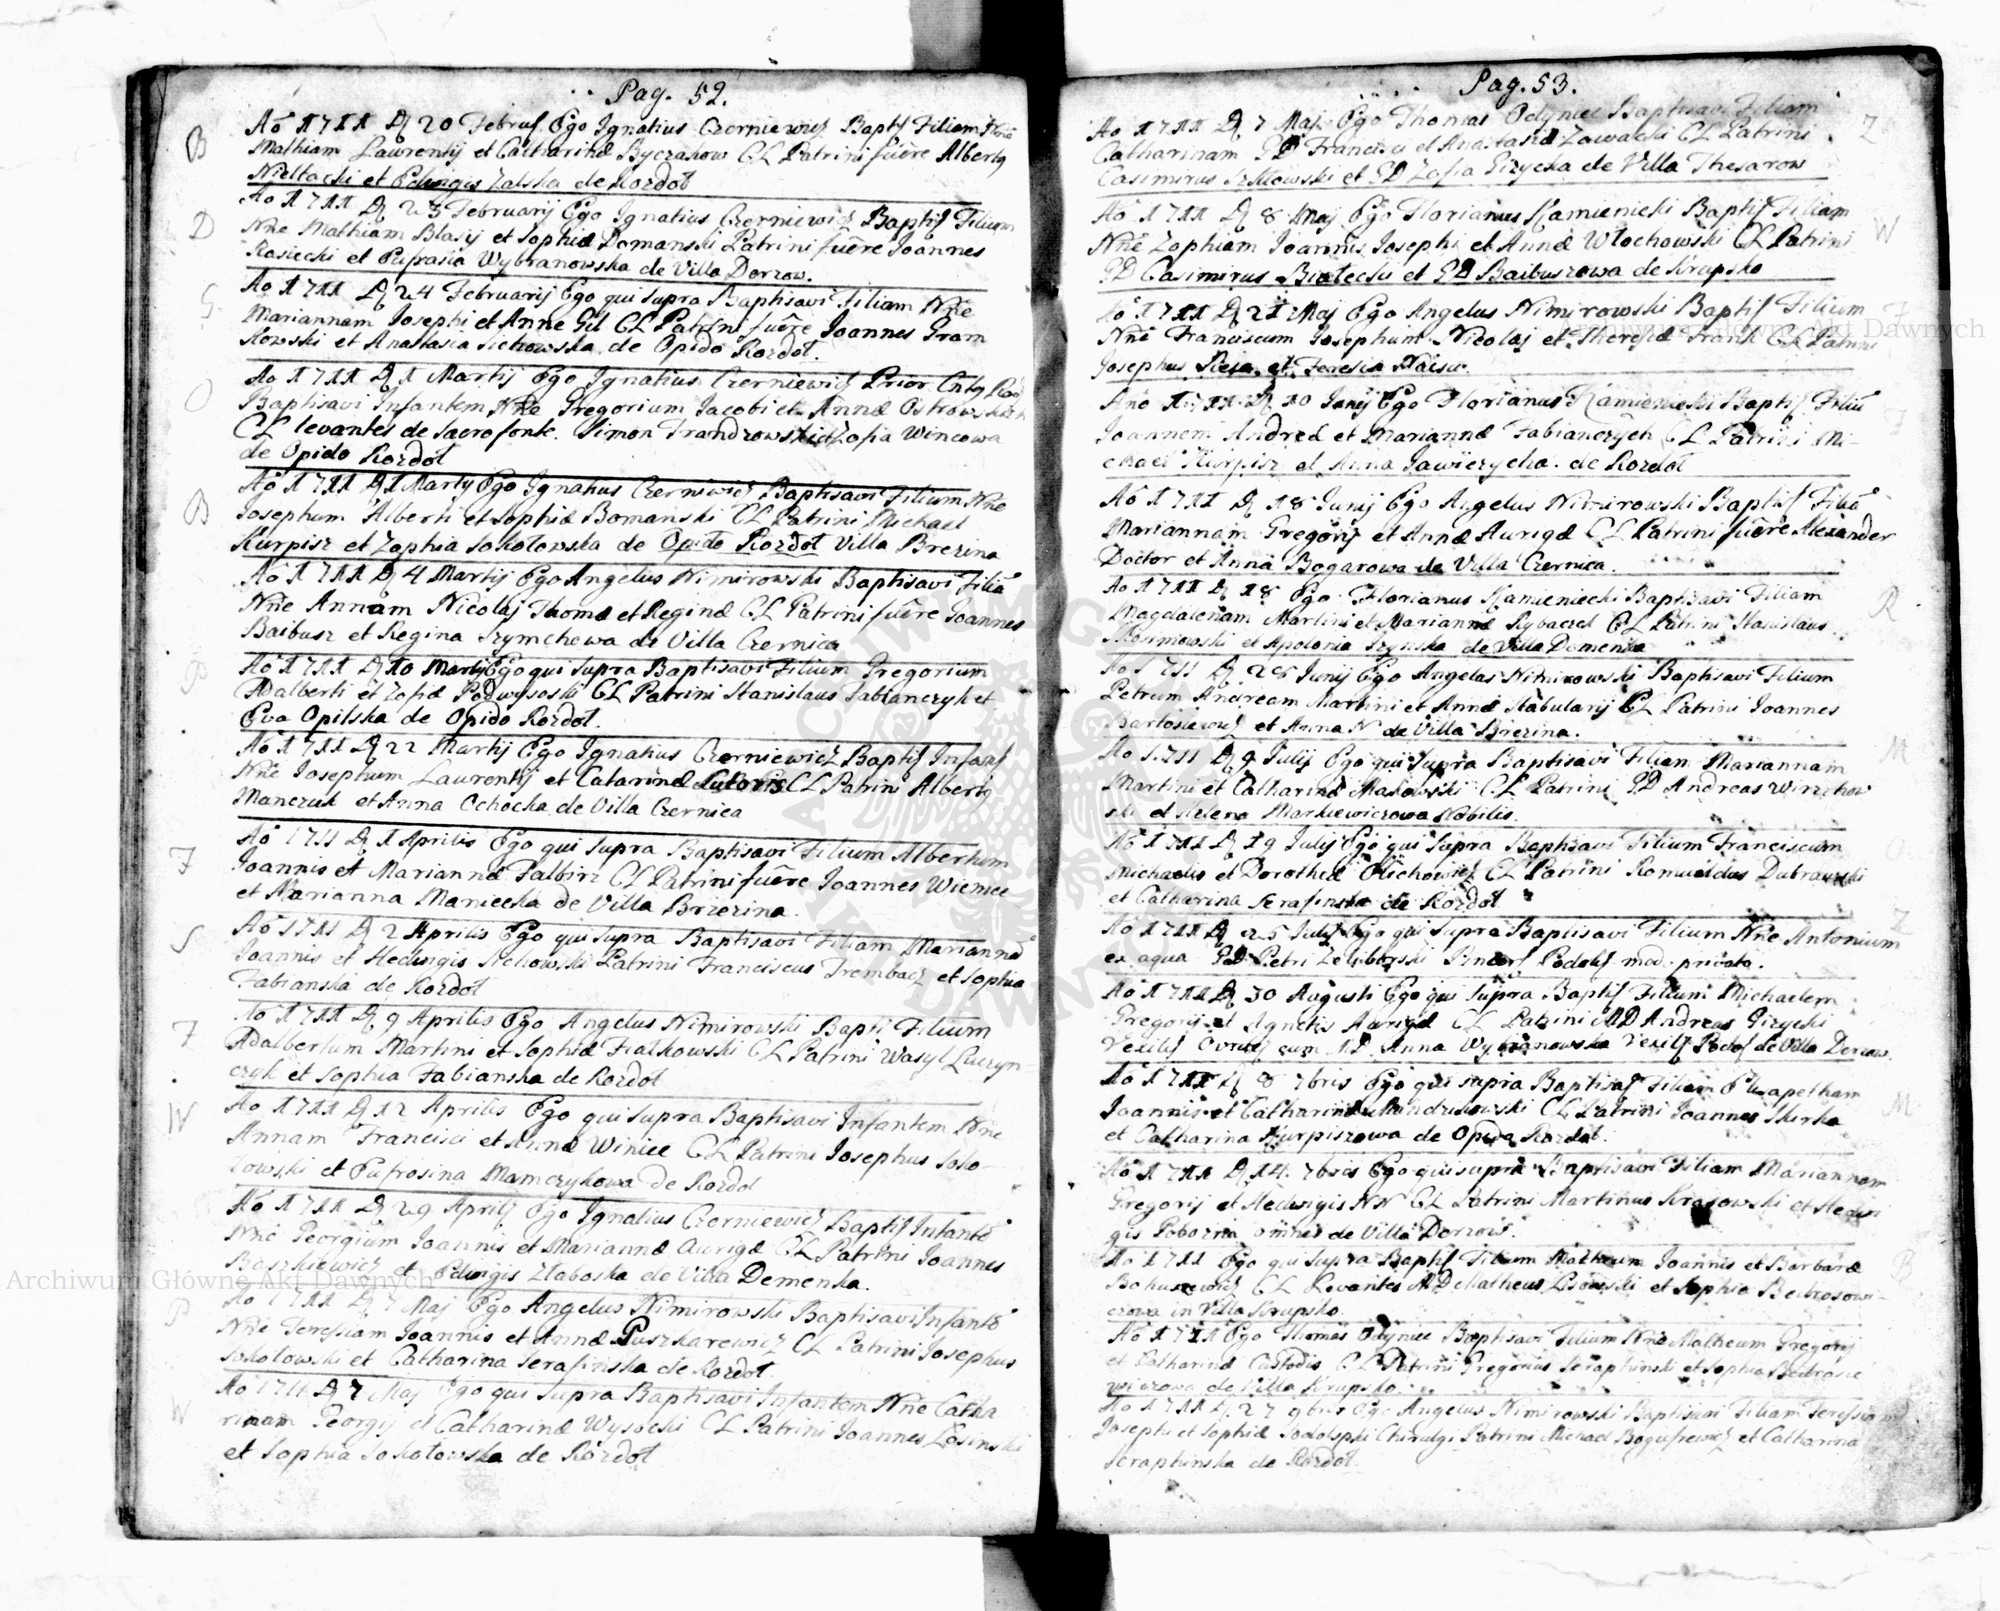 Pag. 52.
B
Aõ 1711 D 20 Februs. Ego Ignatius Czerniewicz Bapts Filiam Nñe
Mathiam Laurentij et Catharinæ Byczakow CL Patrini fuêre Albertq
et Edwigis Zalska de Rozdoł
Ao 1711 D 23 Februarij Ego Ignatius Czerniewicz Baptis Filium
D
Nñe Mathiam Blasij et Sophiæ Domanski Patrini fuêre Joannes
Kosiecki et Eufrasia Wybranowska de Villa Dorzow.
Ao 1711 D 24 Februarij Ego qui supra Baptisavi Filiam Nñe
G
Mariannam Josephi et Anne Gil CL Patrini fuêre Joannes Gram
kowski et Anastasia Sichowska de Opido Rozdoł.
Ao 1711 D 1 Martij Ego Ignatius Czerniewicz Prior
O
Baptisavi Infantem Nñe Gregorium Jacobi et Annæ
CL levantes de Sacro fonte. Simon et Zofia Wincowa
de Opido Rozdoł
Ao 1711 D 1 Martij Ego Ignatius Czerniewicz Baptisavi Filium Nñe
B
Josephum Alberti et Sophiæ Bomanski CL Patrini Michael
Kurpisz et Zophia Sokołowska de Opido Rozdoł Villa Brezina
Ao 1711 D 4 Martij Ego Angelus Nimirowski Baptisavi Filiã
Nñe Annam Nicolaj Thomæ et Reginæ CL Patrini fuêre Joannes
Baibusz et Regina Szymchowa de Villa Czernica
P
Ao 1711 D 10 Martij Ego qui supra Baptisavi Filium Gregorium
Adalberti et Zofiæ Podwysoski CL Patrini Stanislaus Fabianczyk et
Eva Opilska de Opido Rozdoł.
Ao 1711 D 22 Martij Ego Ignatius Czerniewicz Baptis
Nñe Josephum Laurentij et Catarinæ Sutoris CL Patrini Albertq
Manczuk et Anna Ochocka de Villa Czernica
Ao 1711 D 1 Aprilis Ego qui supra Baptisavi Filium Albertum
F
Joannis et Mariannæ Falbirz CL Patrini fuêre Joannes Wieniec
et Marianna Maniecka de Villa Brzezina.
Ao 1711 D 2 Aprilis Ego qui supra Baptisavi Filiam Mariannã
S
Joannis et Hedwigis Sichowski Patrini Franciscus Trembacz et Sophia
Fabianska de Rozdoł
Ao 1711 D 9 Aprilis Ego Angelus Nimirowski Bapti Filium
F
Adalbertum Martini et Sophiæ Fialkowski CL Patrini Wasyl Luczyn-
czyk et Sophia Fabianska de Rozdoł
Ao 1711 D 12 Aprilis Ego qui supra Baptisavi Infantem Nñe
W
Annam Francisci et Annæ Winiec CL Patrini Josephus Soko-
łowski et Eufrosina Mamczykowa de Rozdoł
Ao 1711 D 29 Aprilis Ego Ignatius Czerniewicz Baptis Infantẽ
Nñe Georgium Joannis et Mariannæ Aurigæ CL Patrini Joannes
Baszkiewicz et Edwigis Złaboska de Villa Demenka.
Ao 1711 D 7 Maj Ego Angelus Nimirowski Baptisavi Infantẽ
P
Nñe Teressiam Joannis et Annæ Puszkarewicz CL Patrini Josephus
Sokołowski et Catharina Serafinska de Rozdoł
Ao 1711 D 7 Maj Ego qui supra Baptisavi Infantem Nñe Catha
W
rinam Georgij et Catharinæ Wysocki CL Patrini Joannes Łosinski
et Sophia Sokołowska de Rozdoł
Pag. 53.
Ao 1711 D 7 Maj Ego Thomas Odyniec Baptisavi Filiam
Z
Catharinam GD Francisci et Anastasiæ Zawadcki CL Patrini
Casimirus et GD Zofia Gizycka de Villa Thesarow
Ao 1711 D 8 Maj Ego Florianus Kamieniecki Baptis Filiam
W
Nñe Zophiam Joannis Josephi et Annæ Włochowski CL Patrini
GD Casimirus Białecki et GD Baibuszowa de Krupsko
Ao 1711 D 21 Maj Ego Angelus Nimirowski Baptis Filium
F
Nñe Franciscum Josephum Nicolaj et Theresiæ Frank CL Patrini
Josephus et Teresia
Ano 1711 D 10 Junij Ego Florianus Kamieniecki Baptis Filiũ
F
Joannem Andreæ et Mariannæ Fabianczych CL Patrini Mi-
chael Kurpisz et Anna de Rozdoł
Ao 1711 D 18 Junij Ego Angelus Nimirowski Baptis Filiã
Mariannam Gregorij et Annæ Aurigæ CL Patrini fuêre Alexander
Doctor et Anna Bogarowa de Villa Czernica.
Ao 1711 D 18 Ego Florianus Kamieniecki Baptisavi Filiam
R
Magdalenam Martini et Mariannæ Rybaczek CL Patrini Stanislaus
et Apolonia de Villa Demenka
Ao 1711 D 28 Junij Ego Angelus Nimirowski Baptisavi Filium
Petrum Andream Martini et Annæ Stabularij CL Patrini Joannes
Bartosiewicz et Anna N de Villa Brezina.
Ao 1711 D 9 Julij Ego qui supra Baptisavi Filiam Mariannam
M
Martini et Catharinæ Makowski CL Patrini GD Andreas Wirzchow
ski et Helena Markiewiczowa Nobilis.
Ao 1711 D 19 Julij Ego qui supra Baptisavi Filium Franciscum
O
Michaelis et Dorotheæ Olichowicz CL Patrini Romualdus Dubrawski
et Catharina Serafinska de Rozdoł
Ao 1711 D 25 Julij Ego qui supra Baptisavi Filium Nñe Antonium
Z
ex aqua GD Petri Podols
Ao 1711 D 30 Augusti Ego qui supra Baptis Filium Michaelem
Gregorij et Agnetis Aurigæ CL Patrini MD Andreas Gizycki
Vexills cum MD Anna Wybranowska Vexills Podols de Villa Dorzow
Ao 1711 D 8 7bris Ego qui supra Filiam
M
Joannis et Catharinæ CL Patrini Joannes Skirka
et Catharina Kurpiszowa de Opido Rozdoł.
Ao 1711 D 14 7bris Ego qui supra Baptisavi Filiam Mariannam
Gregorij et Hedwigis NN CL Patrini Martinus Krasowski et Hedwi
gis omnes de Villa Dorzow.
Ao 1711 Ego qui supra Baptis Filium Matheum Joannis et Barbaræ
B
CL Levantes MD Matheus et Sophia Bedrosowi-
czowa in Villa Krupsko.
Ao 1711 Ego Thomas Odyniec Baptisavi Filium Nñe Matheum Gregorij
et Catharinæ Custodis CL Patrini Gregorius Seraphinski et Sophia
de Villa Krupsko.
Ao 1711 D 27 9bris Ego Angelus Nimirowski Baptisavi Filiam Teressiam
Josephi et Sophiæ Chirurgi Patrini Michael Bogusiewicz et Catharina
Seraphinska de Rozdoł.
Archiwum Główne Akt Dawnych
Archiwum Główne Akt Dawnych
ARCHIWUM GŁÓWNE AKT DAWNYCH